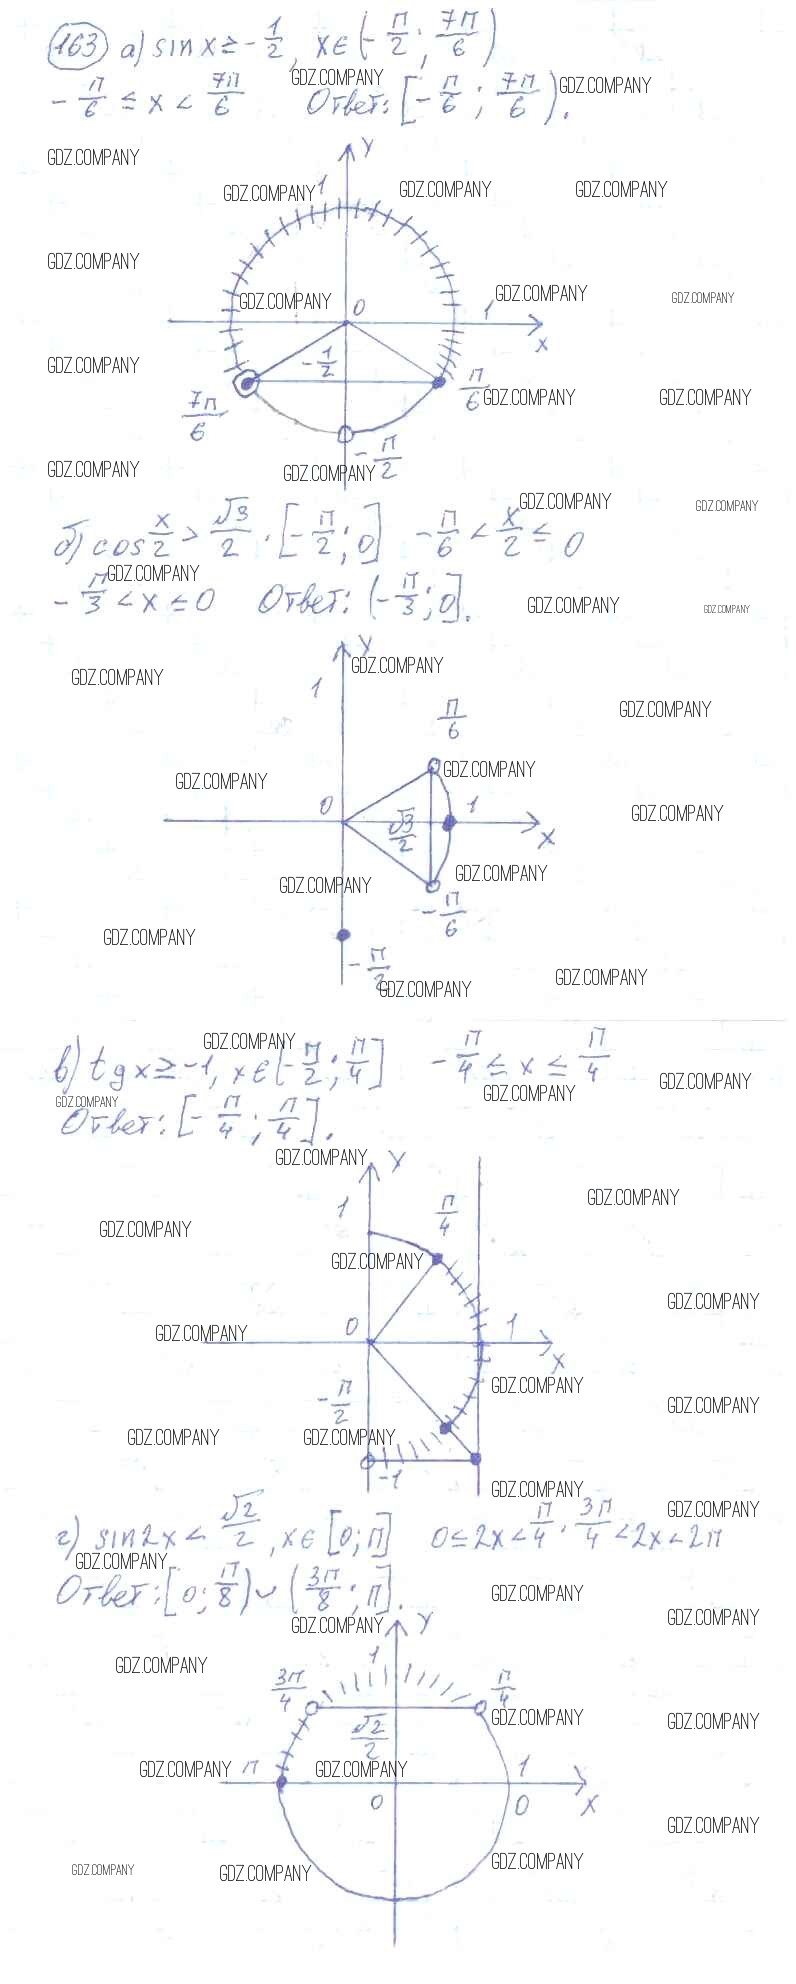 163 а) sin x ≥ -1/2, x ∈ (-π/2; 7π/6)
-π/6 ≤ x < 7π/6 Ответ: [-π/6; 7π/6).
y
1
0
1
x
-1/2
7π/6
π/6
-π/2
б) cos x/2 > √3/2. [-π/2; 0] -π/6 < x/2 ≤ 0
-π/3 < x ≤ 0 Ответ: (-π/3; 0].
y
1
π/6
0
√3/2
1
x
-π/6
-π/2
в) tg x ≥ -1, x ∈ (-π/2; π/4] -π/4 ≤ x ≤ π/4
Ответ: [-π/4; π/4].
y
1
π/4
0
1
x
-π/2
-1
г) sin 2x < √2/2, x ∈ [0; π] 0 ≤ 2x < π/4. 3π/4 < 2x < 2π
Ответ: [0; π/8) ∪ (3π/8; π].
y
1
3π/4
π/4
√2/2
π
1
0
0
x
GDZ.COMPANY